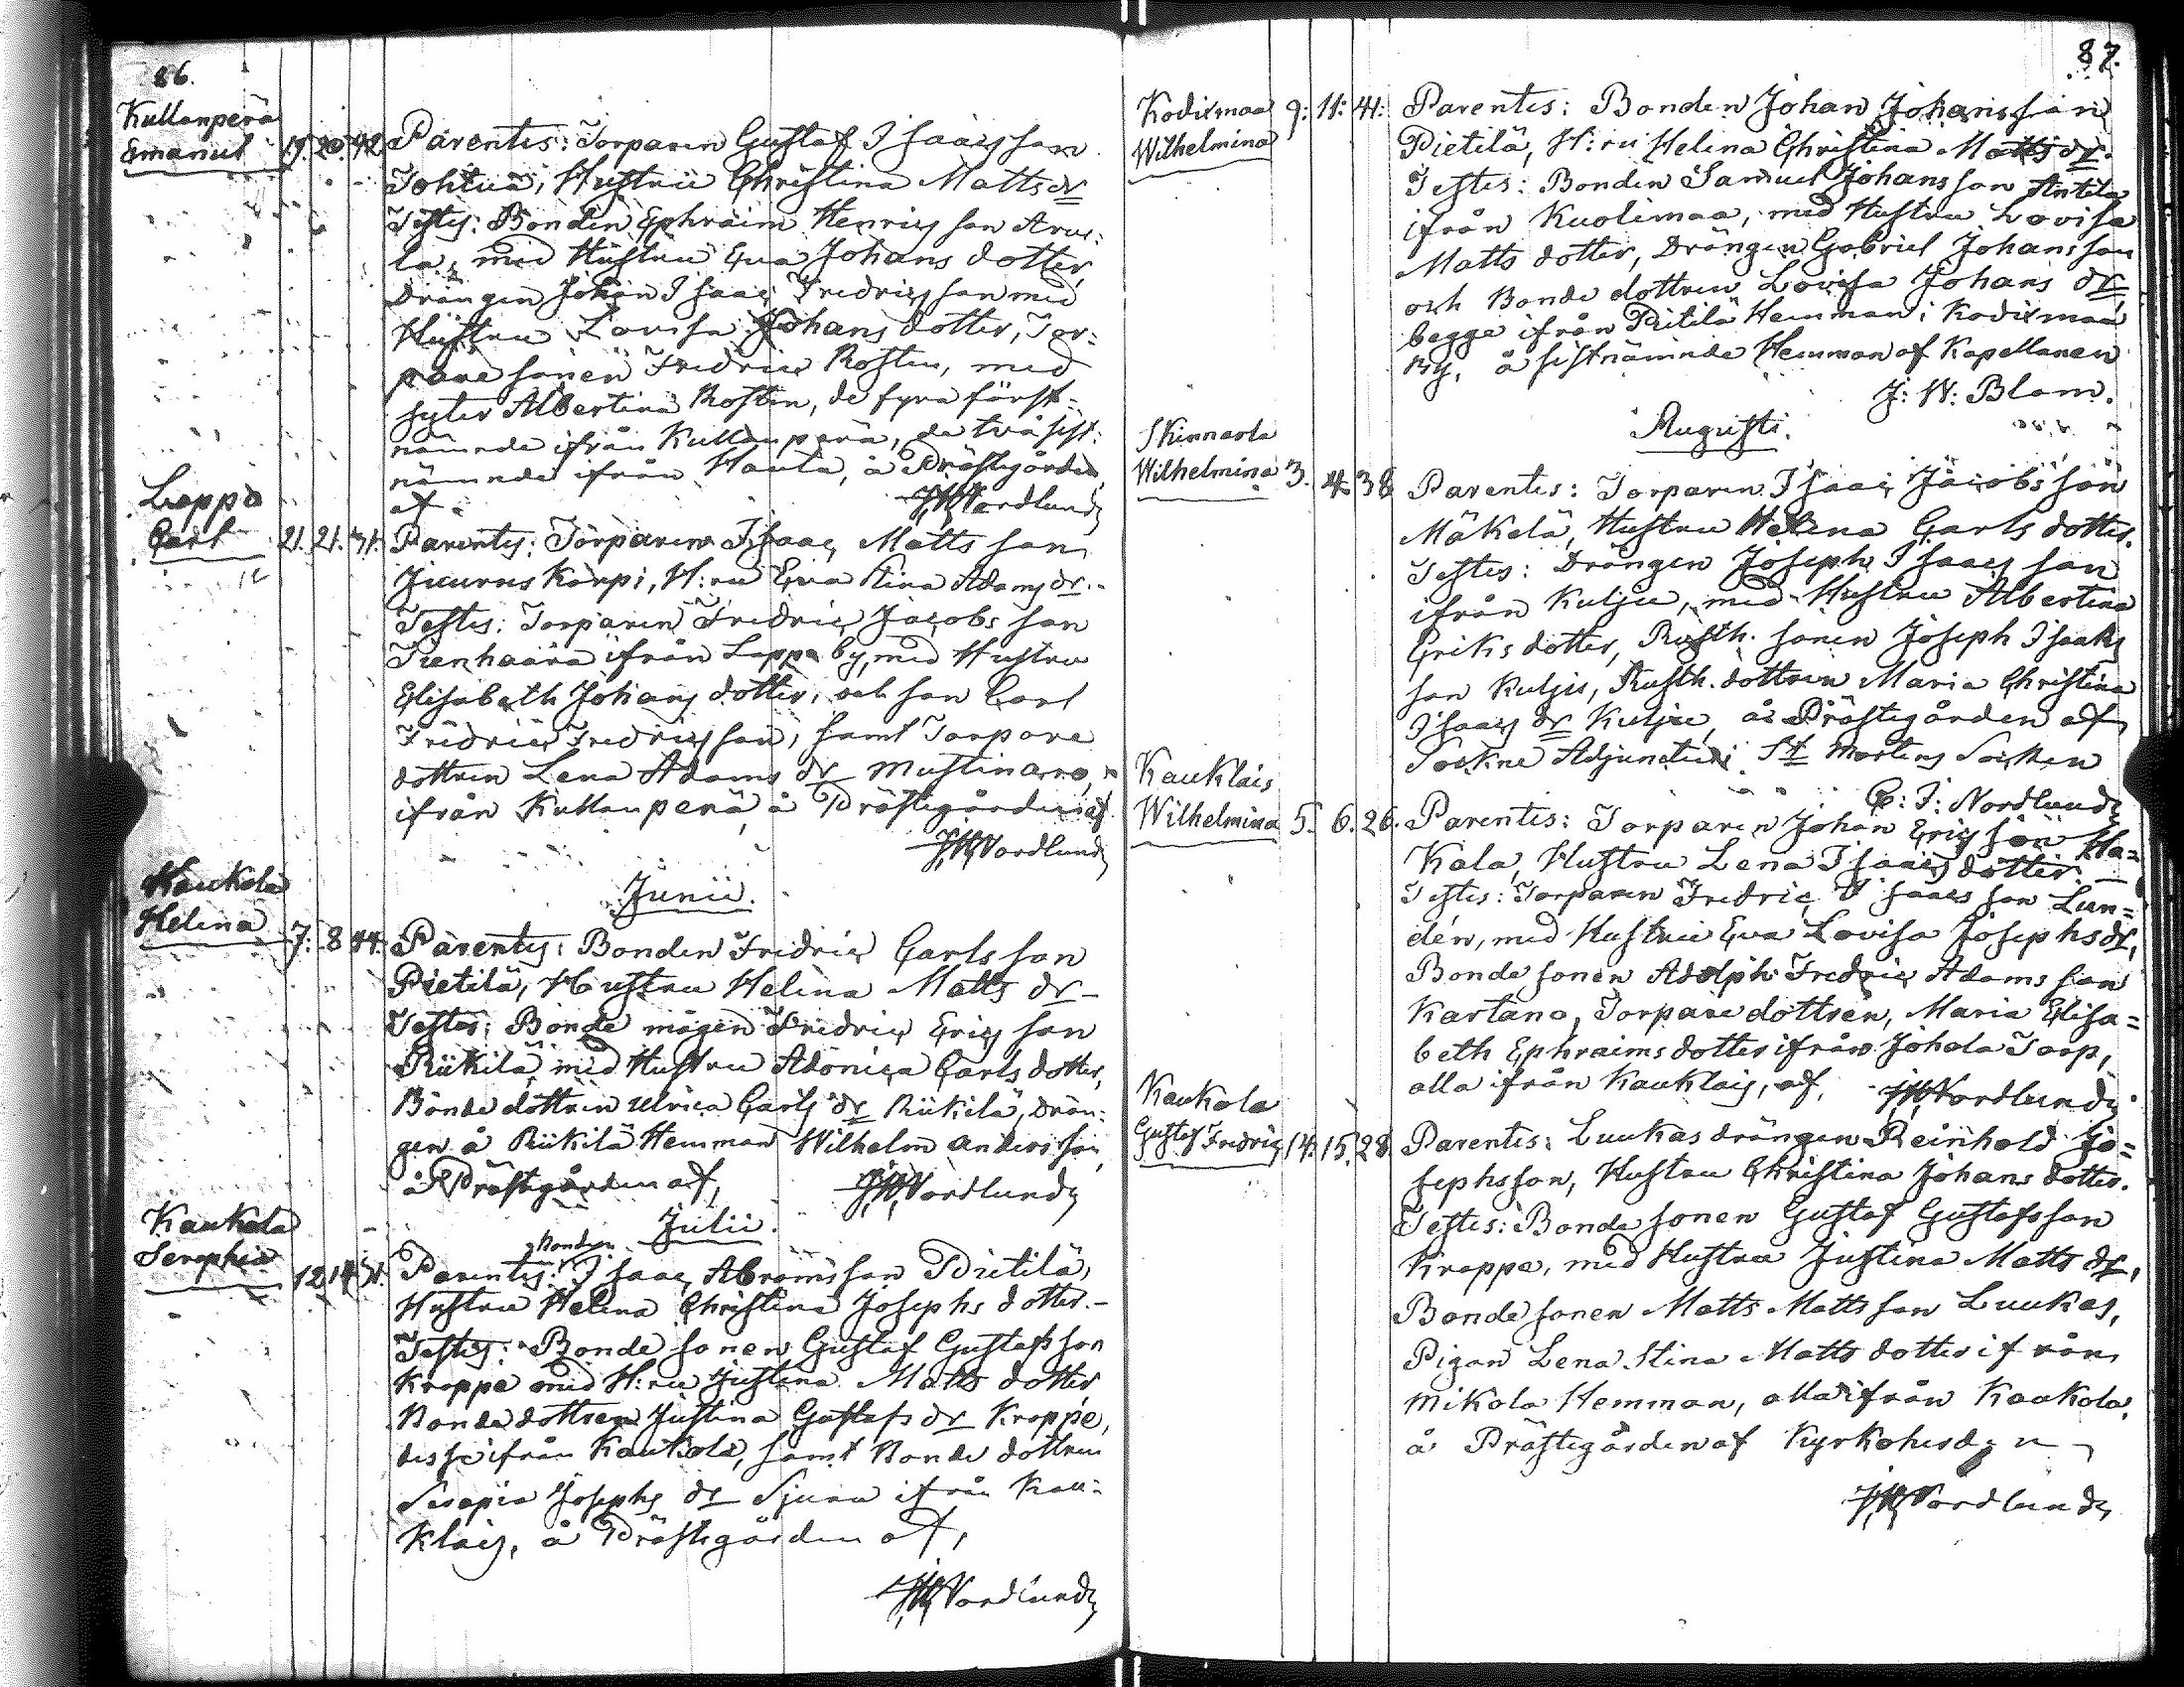 86.
Kullanperä
Emanuel 19. 20. 42. Parentes: Torparen Gustaf Isaacsson
Hustru Christina Matts dr
Testes: Bonden Ephraim Henricsson Arve-
la, med Hustru Eva Johans dotter,
Drängen Johan Isaac Fredricsson med
Hustru Lovisa Johans dotter, Tor-
pare sonen Fredric Rosten, med
syster Albertina Rosten, de fyra först-
nämnde ifrån Kullanperä, de två sist-
nämnde ifrån Hauta, å Prästegården
af
Nordlund
Lappo
Carl 21. 21. 31. Parentes: Torparen Isaac Matts son
Juurus Korpi, H:ru Eva Stina Adams dr.
Testes: Torparen Fredric Jacobs son
Tienhaara ifrån Lappo by, med Hustru
Elisabeth Johans dotter, och son Carl
Fredric Fredricsson, samt Torpare
dottren Lena Adams dr Mustinaro,
ifrån Kullanperä, å Prästegården af
Nordlund
Junii.
Kaukola
Helena 7. 8 44. Parentes: Bonden Fredric Carlsson
Pietilä, Hustru Helena Matts dr
Testes: Bonde mågen Fredric Erics son
Riikilä med Hustru Adonica Carls dotter,
Bonde dottren Ulrica Carls dr Riikilä, Drän-
gen å Riikilä Hemman Wilhelm Andersson
å Prästegården af,
Nordlund
Julii.
Kaukola
Seraphia 12. 14. 31. Parentes: Bonden Isaac Abramsson Pietilä,
Hustru Helena Christina Josephs dotter.
Testes: Bonde sonen Gustaf Gustafsson
Kroppe med H:ru Justina Matts dotter
Bonde dottren Justina Gustafs dr Kroppe,
desse ifrån Kaukola, samt Bonde dottren
Serapia Josephs dr Sjuru ifrån Kau-
klais, å Prästegården af,
Nordlund
87.
Kodixmaa 9: 11: 41: Parentes: Bonden Johan Johansson
Wilhelmina Pietilä, H:ru Helena Christina Matts dr.
Testes: Bonden Samuel Johansson Antila
ifrån Kuolimaa, med Hustru Lovisa
Matts dotter, Drängen Gabriel Johansson
och Bonde dottren Lovisa Johans dr
begge ifrån Pietilä Hemman i Kodixmaa
by, å sistnämnde Hemman af Kapellanen
J: W: Blom.
Augusti.
Skinnarla
Wilhelmina 3. 4. 38 Parentes: Torparen Isaac Jacobs son
Mäkelä, Hustru Helena Carls dotter.
Testes: Drängen Joseph Isaacs son
ifrån Kulju, med Hustru Albertina
Eriks dotter, Rusth. sonen Joseph Isaaks
son Kulju, Rusth. dottren Maria Christina
Isaacs dr Kulju, å Prästegården af
Sockne Adjuncten i St Mortens Socken
C: J: Nordlund
Kauklais
Wilhelmina 5. 6. 26. Parentes: Torparen Johan Ericsson Ha-
kala, Hustru Lena Isaacs dotter.
Testes: Torparen Fredric Isaacs son Lun-
den, med Hustru Eva Lovisa Josephs dr,
Bonde sonen Adolph Fredric Adams son
Kartano, Torpare dottren, Maria Elisa-
beth Ephraims dotter ifrån Johola Torp,
alla ifrån Kauklais, af,
Nordlund
Kaukola
Gustaf Fredric 14. 15. 28. Parentes: Luukas drängen Reinhold Jo-
sephsson, Hustru Christina Johans dotter.
Testes: Bonde sonen Gustaf Gustafsson
Kroppe, med Hustru Justina Matts dr,
Bonde sonen Matts Mattsson Luukas,
Pigan Lena Stina Matts dotter ifrån
Mikola Hemman, alla ifrån Kaukola,
å Prästegården af Kyrkoherden
Nordlund